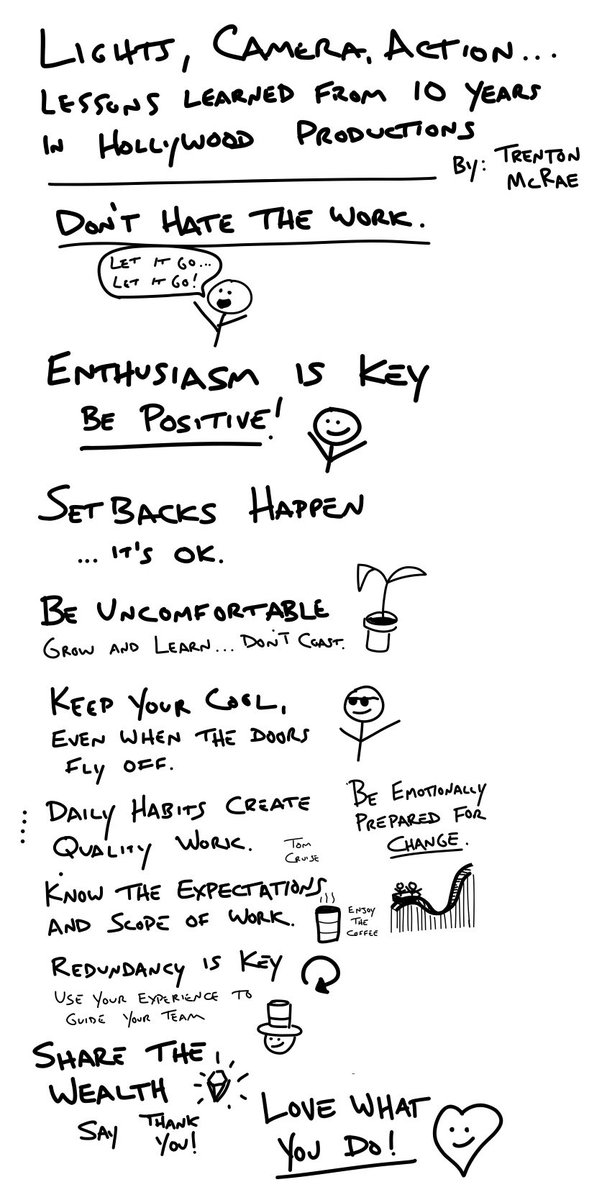 LIGHTS, CAMERA, ACTION...
LESSONS LEARNED FROM 10 YEARS
IN HOLLYWOOD PRODUCTIONS
BY: TRENTON
MCRAE
DON'T HATE THE WORK.
LET IT GO...
LET IT GO!
ENTHUSIASM IS KEY
BE POSITIVE!
SETBACKS HAPPEN
... IT'S OK.
BE UNCOMFORTABLE
GROW AND LEARN... DON'T COAST.
KEEP YOUR COOL,
EVEN WHEN THE DOORS
FLY OFF.
DAILY HABITS CREATE
QUALITY WORK.
TOM
CRUISE
BE EMOTIONALLY
PREPARED FOR
CHANGE.
KNOW THE EXPECTATIONS
AND SCOPE OF WORK.
ENJOY
THE
COFFEE
REDUNDANCY IS KEY
USE YOUR EXPERIENCE TO
GUIDE YOUR TEAM
SHARE THE
WEALTH
SAY THANK
YOU!
LOVE WHAT
YOU DO!